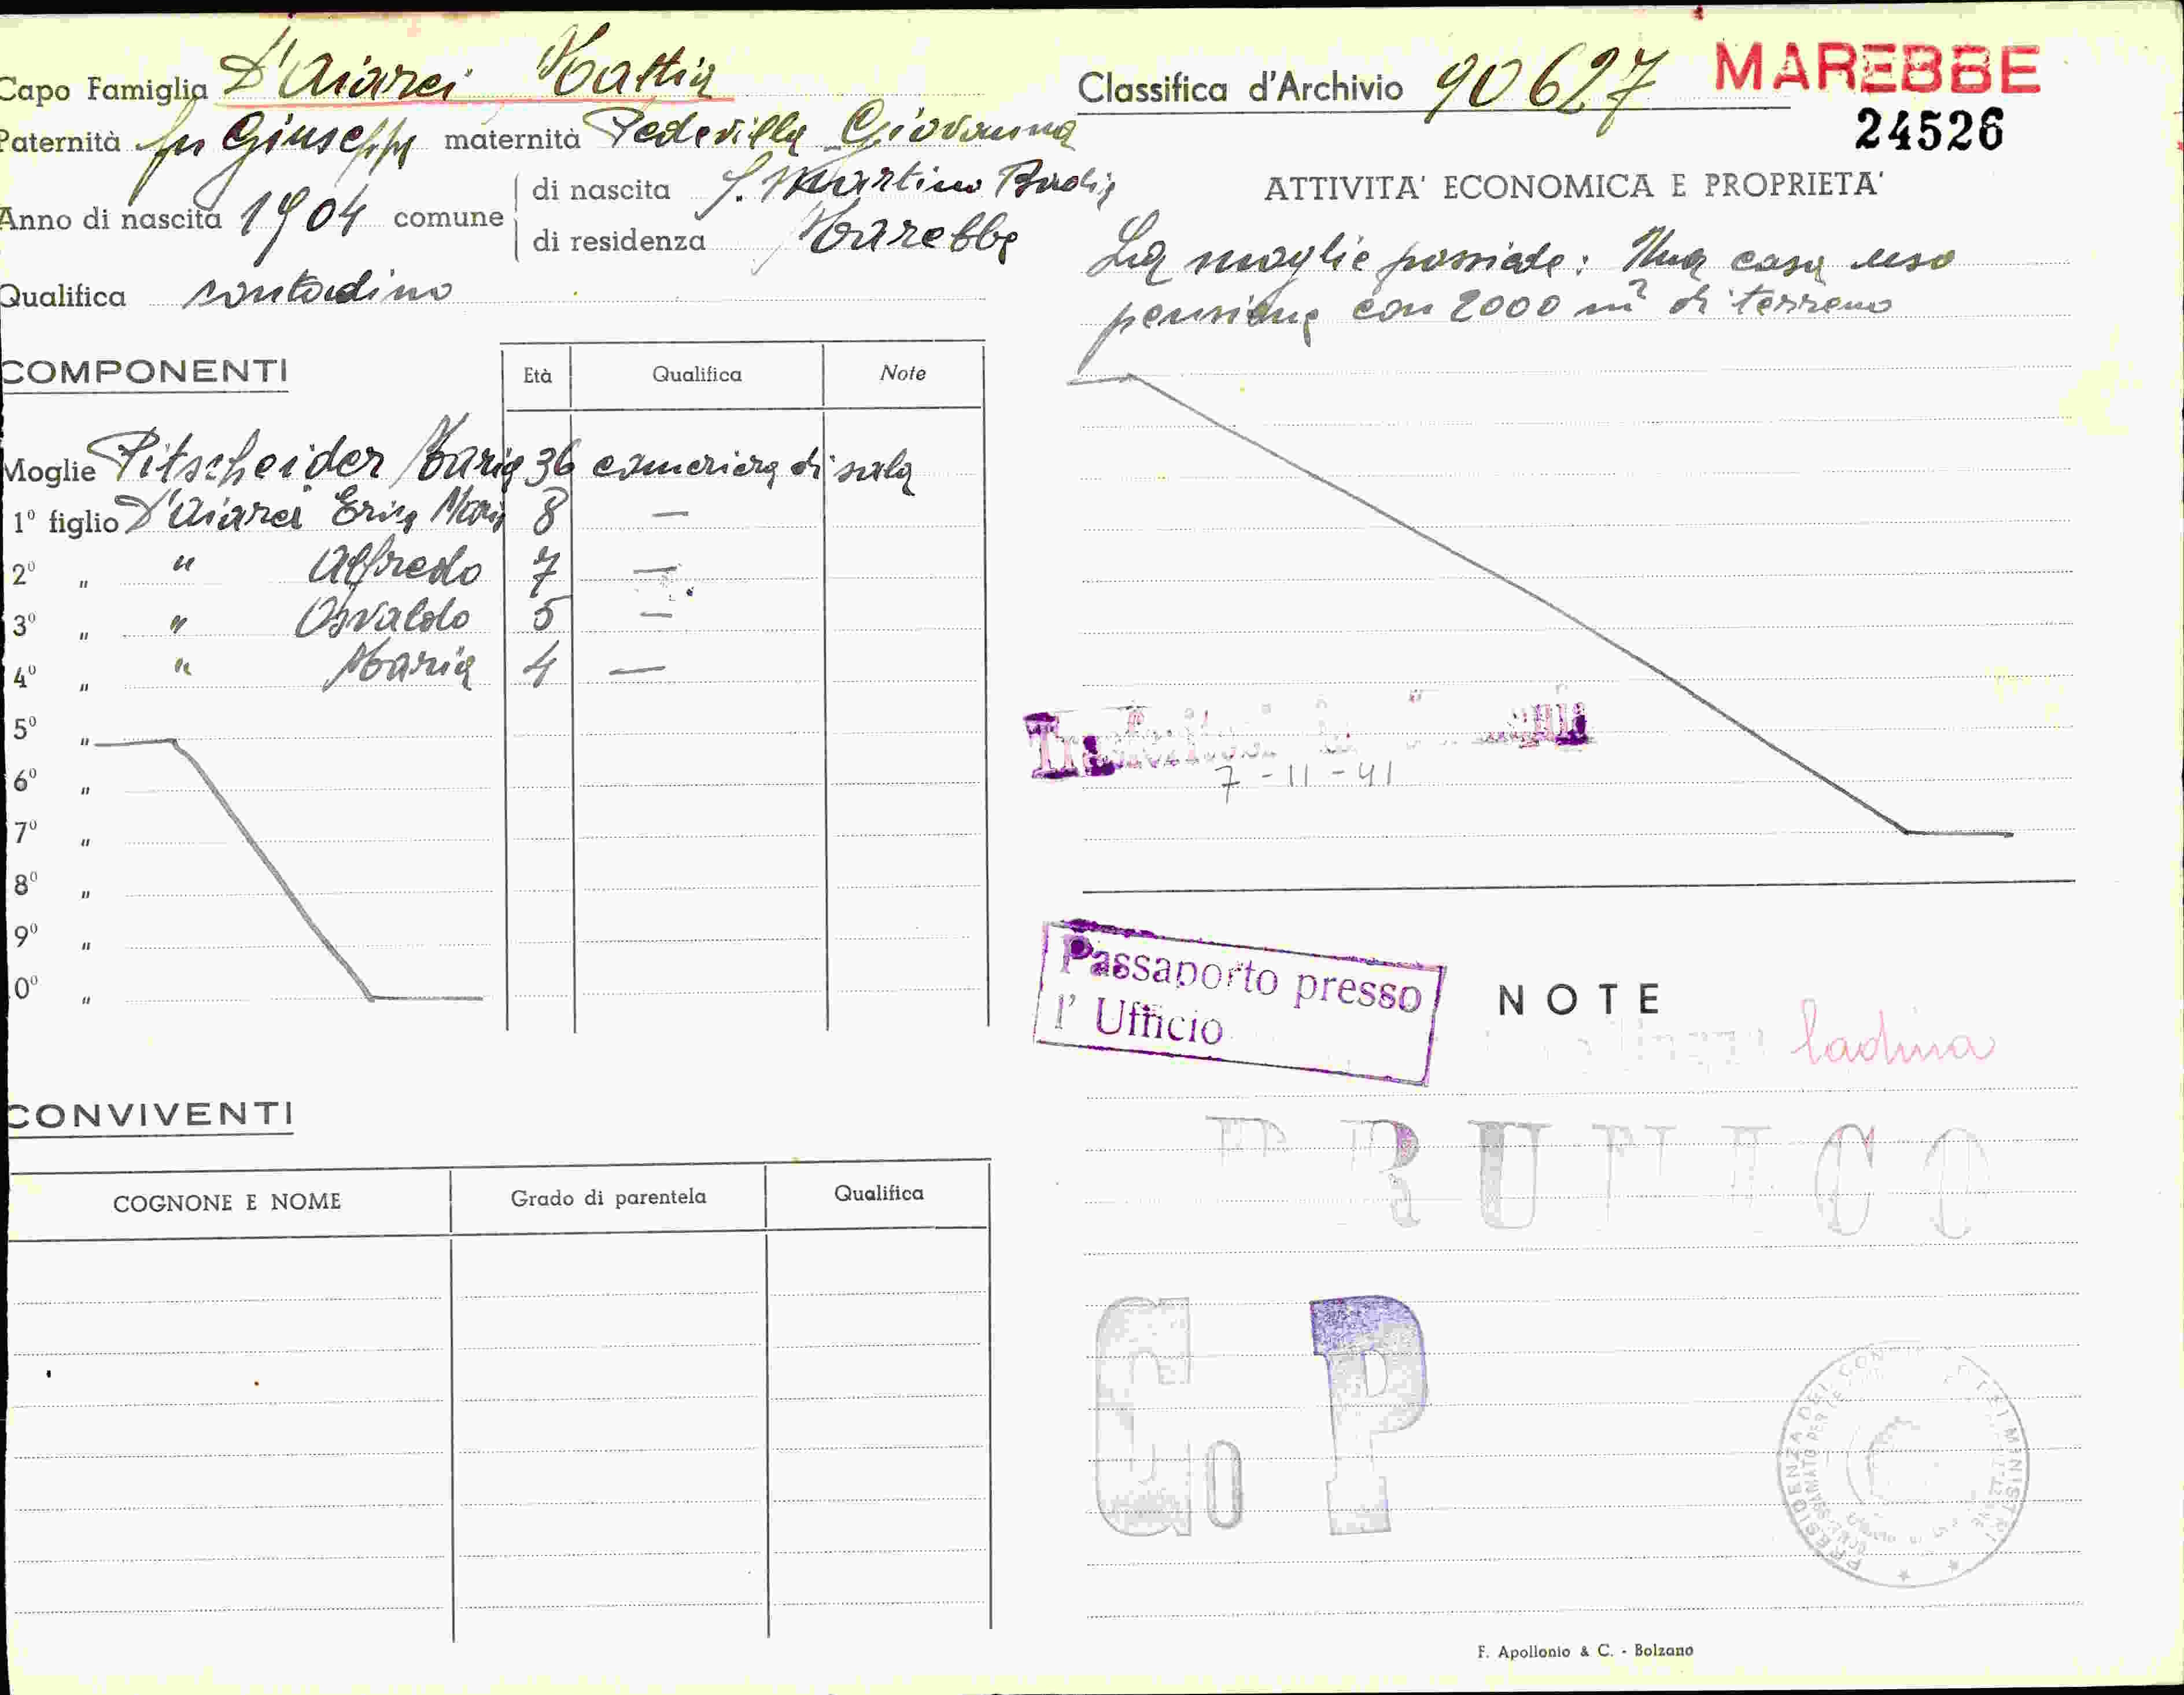 Capo Famiglia D'Aiarei Mattia
Paternità fu Giuseppe maternità Pedevilla Giovanna
Anno di nascita 1904 comune
di nascita S. Martino Badia
di residenza Marebbe
Qualifica contadino
COMPONENTI
Età Qualifica Note
Moglie Pitscheider Maria 36 cameriera di sala
1º figlio D'Aiarei Erica Maria 8 —
2º " " Alfredo 7 —
3º " " Osvaldo 5 —
4º " " Maria 4 —
5º "
6º "
7º "
8º "
9º "
0º "
CONVIVENTI
COGNONE E NOME Grado di parentela Qualifica
Classifica d'Archivio 90627
MAREBBE
24526
ATTIVITA' ECONOMICA E PROPRIETA'
La moglie possiede: Una casa uso
pensione con 2000 m² di terreno
7-11-41
Passaporto presso
l' Ufficio
NOTE
ladina
G P
PRESIDENZA DEL
F. Apollonio & C. - Bolzano